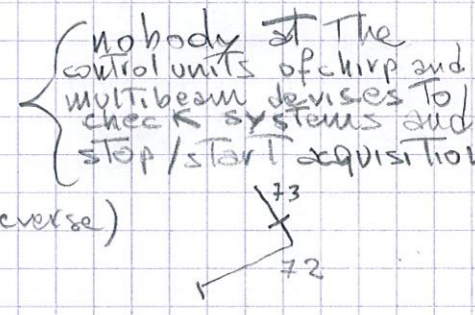 nobody at The
control units of chirp and
multibeam devises To
check systems and
stop/start acquisition
everse)
73
72